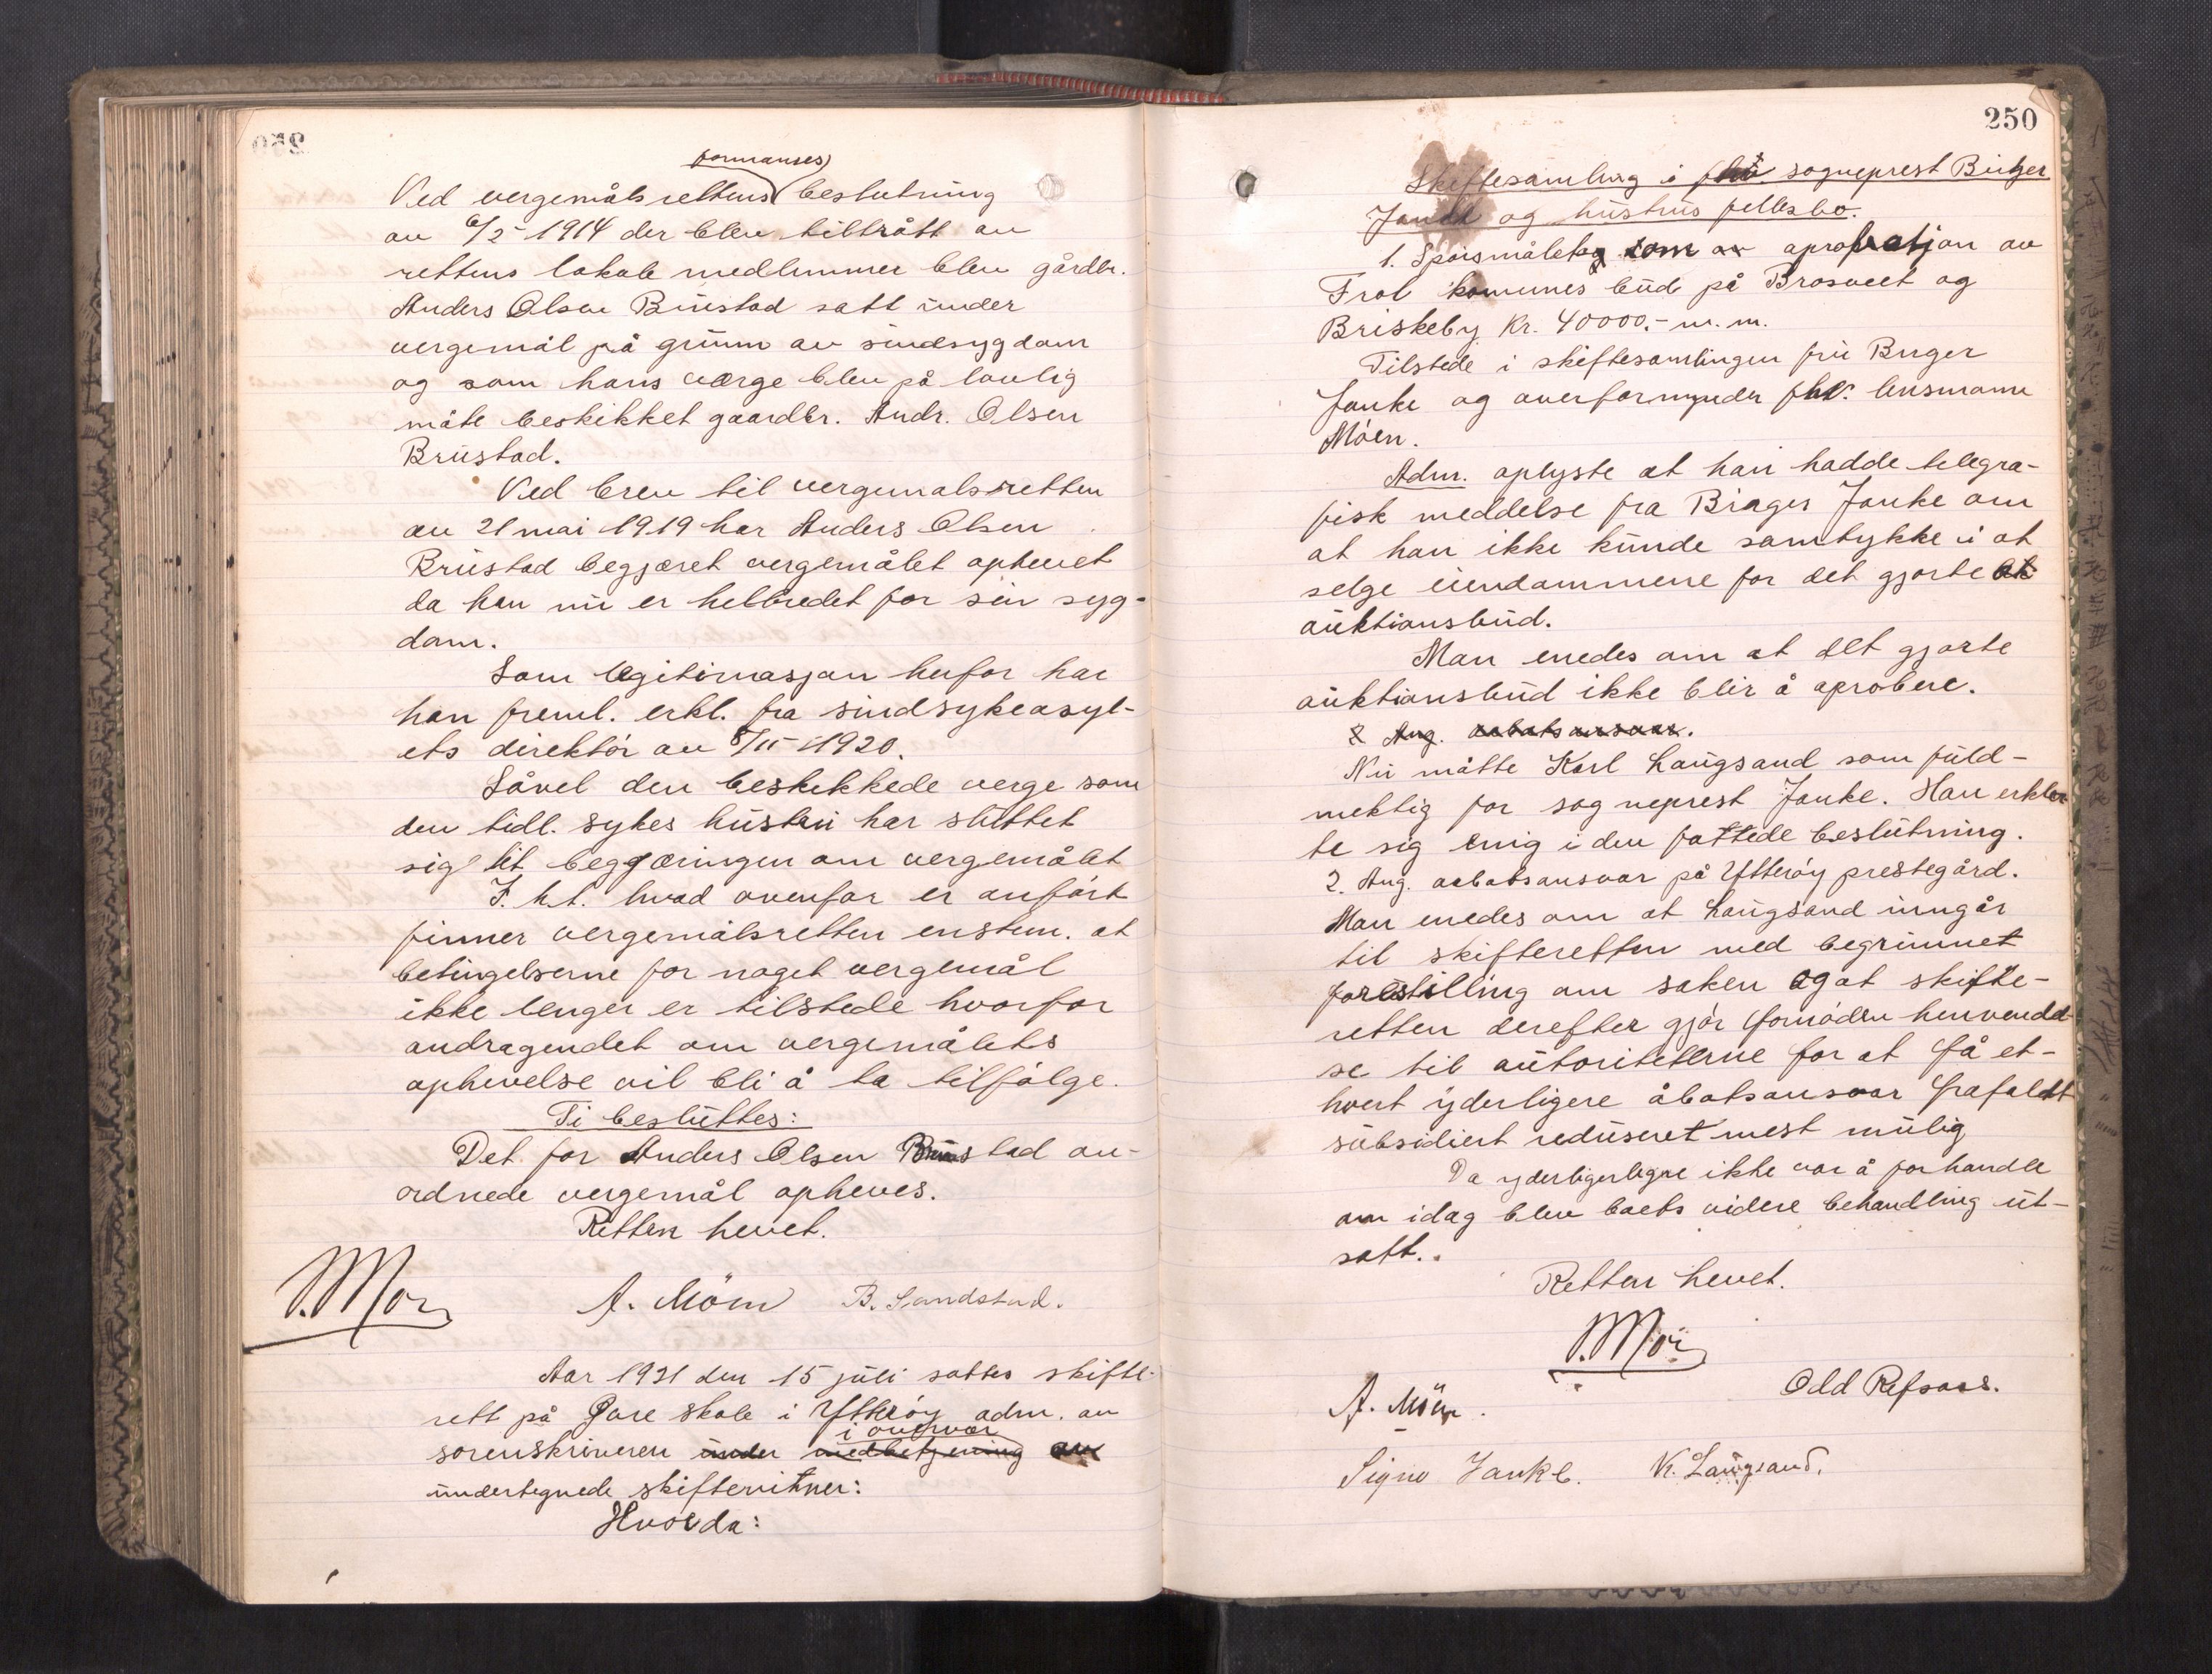 formanses
Ved vergemålsrettens beslutning
av 6/5 1914 der blev tiltrått av
rettens lokale medlemmer blev gårdbr.
Anders Olsen Brustad satt under
vergemål på grunn av sindsygdom
og som hans værge blev på lovlig
måte beskikket gaardbr. Andr. Olsen
Brustad.
Ved brev til vergemalsretten
av 21 mai 1919 har Anders Olsen
Brustad begjæret vergemålet ophevet
da han nu er helbredet for sin syg-
dom.
Som legitimasjon herfor har
han freml. erkl. fra sindsykeasyl-
ets direktör av 8/11 1920.
Såvel den beskikkede verge som
den tidl. sykes hustru har sluttet
sig til begjæringen om vergemålet
F. h.t. hvad ovenfor er anfört
finner vergemålsretten enstem. at
betingelserne for noget vergemål
ikke lenger er tilstede hvorfor
andragendet om vergemålets
ophevelse vil bli å ta tilfölge.
Ti besluttes:
Det for Anders Olsen Brustad an-
ordnede vergemål opheves.
Retten hevet.
A. Möen B. Sandstad.
Aar 1921 den 15 juli sattes skifte-
rett på Gore skole i Ytteröy adm. av
i overvær
sorenskriveren under medbetjening av
undertegnede skiftevitner:
Hvorda:
250
Skiftesamling i fhv. sogneprest Birger
Janke og hustrus fellesbo.
1. Spörsmålet som av aprobatjon av
Frol komunes bud på Brosveet og
Briskeby Kr. 40000.- m.m.
Tilstede i skiftesamlingen fru Birger
Janke og overformynder fhv. lensmann
Möen.
Adm. oplyste at han hadde telegra-
fisk meddelse fra Birger Janke om
at han ikke kunde samtykke i at
selge eiendommene for det gjorte
auktionsbud.
Man enedes om at det gjorte
auktionsbud ikke blir å aprobere.
2 Ang. aabotsansvar.
Nu mötte Karl Langsand som fuld-
mektig for sogneprest Janke. Han erklær
te sig enig i den fattede beslutning.
2. Ang. aabotsansvar på Ytteröy prestegård.
Man enedes om at Langsand inngår
til skifteretten med begrunnet
forestilling om saken og at skifte-
retten derefter gjör fornöden henvendel
se til autoriteterne for at få et-
hvert yderligere åbotsansvar frafaldt
subsidiert reduseret mest mulig
Da yderligerlegre ikke var å forhandle
om idag blev boets videre behandling ut-
satt.
Retten hevet.
A. Möen.
Odd Refsaas.
Signe Janke. K. Langsand.